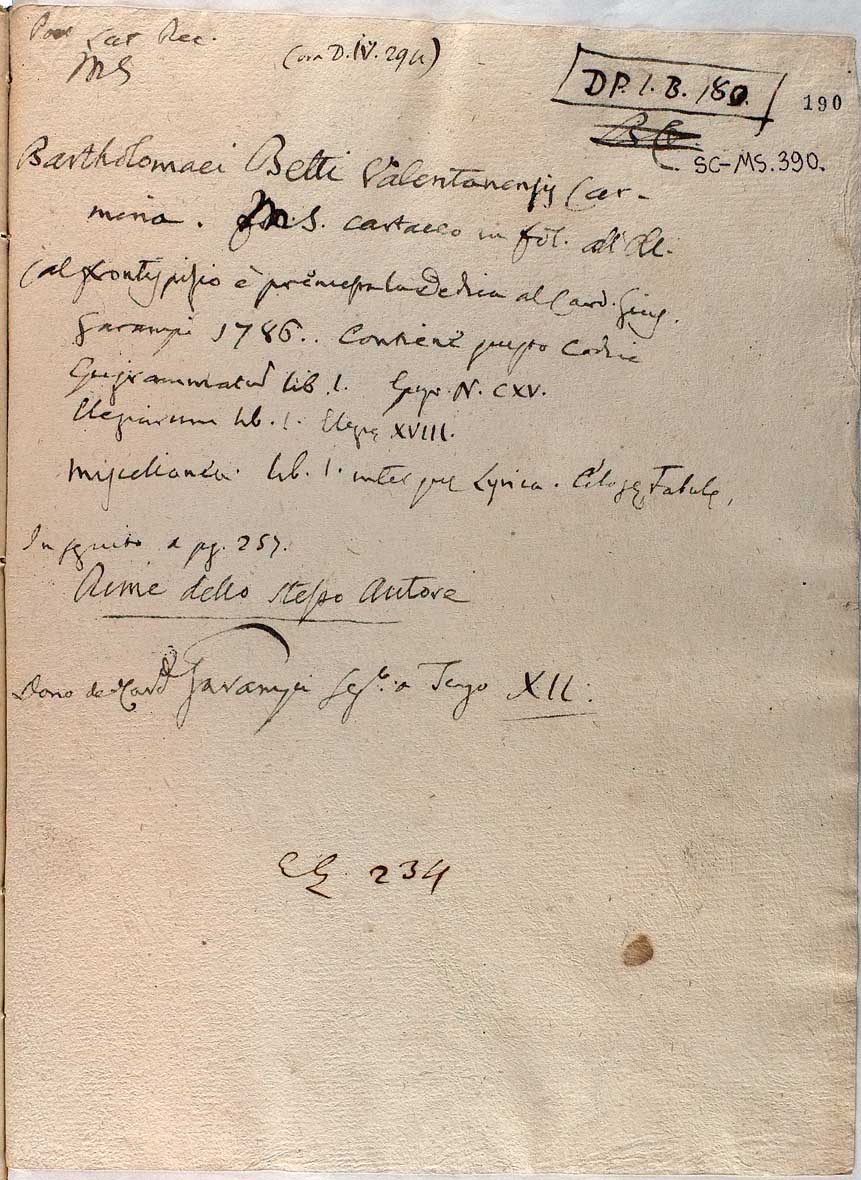 Poet Lat Rec.
MS
(ora D.IV.294)
DP. I. B. 180.
190
SC-MS. 390.
Bartholomaei Betti Valentanensis Car-
mina. MS. cartaceo in fol. al
al frontispisio è premessa la Dedica al Card. Gius.
Garampi 1786. Contiene questo Codice
Epigrammatum lib. I. Epigr. N. CXV.
Elegiarum lib. I. Elegię XVIII.
Miscellanea. lib. I. inter quę Lyrica. Eclogę, Fabulę,
In seguito a pg. 257.
Rime dello stesso Autore
Dono del Card Garampi XII.
234